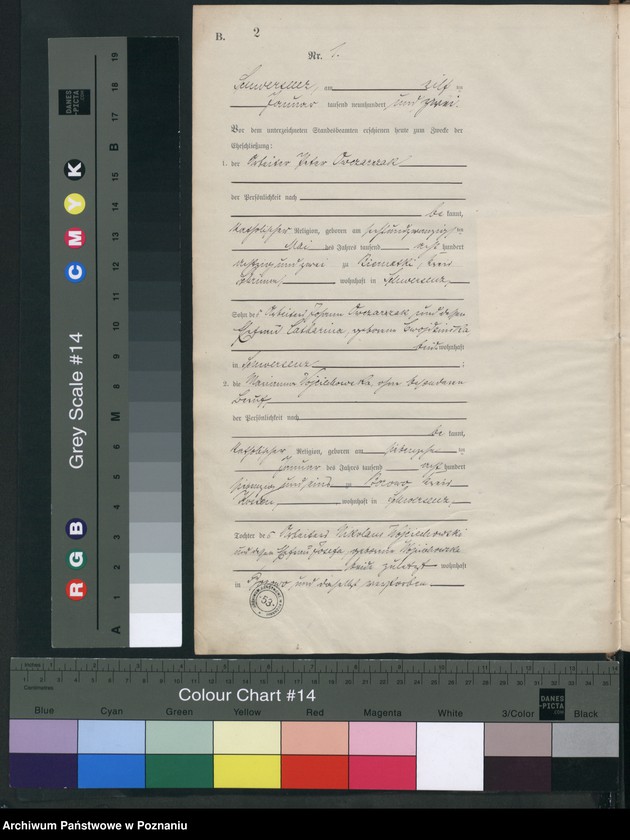 B. 2
Nr. 1.
Schwersenz, am elf ten
Januar tausend neunhundert und zwei.
Vor dem unterzeichneten Standesbeamten erschienen heute zum Zwecke der
Eheschließung:
1. der Arbeiter Peter Owczarczak
der Persönlichkeit nach
be kannt,
katholischer Religion, geboren am ten
Mai des Jahres tausend acht hundert
achtzig und zwei zu Biernatki, Kreis
Schrimm, wohnhaft in Schwersenz,
Sohn des Arbeiters Johann Owczarczak, und dessen
Ehefrau Catharina, geborene
beide wohnhaft
in Schwersenz ;
2. die Marianna Wojciechowska, ohne besonderen
Beruf,
der Persönlichkeit nach
be kannt,
katholischer Religion, geboren am ten
Januar des Jahres tausend acht hundert
und eins zu Borowo, Kreis
Kosten, wohnhaft in Schwersenz,
Tochter des Arbeiters Nikolaus Wojciechowski
und dessen Ehefrau Josefa, geborene
beide zuletzt wohnhaft
in Borowo, und daselbst verstorben
53
Grey Scale #14
A 1 2 3 4 5 6 M 8 9 10 11 12 13 14 15 B 17 18 19
R G B
C M Y K
DANES
-PICTA
.COM
Inches
Centimetres
Colour Chart #14
DANES
-PICTA
.COM
Blue Cyan Green Yellow Red Magenta White 3/Color Black
Archiwum Państwowe w Poznaniu